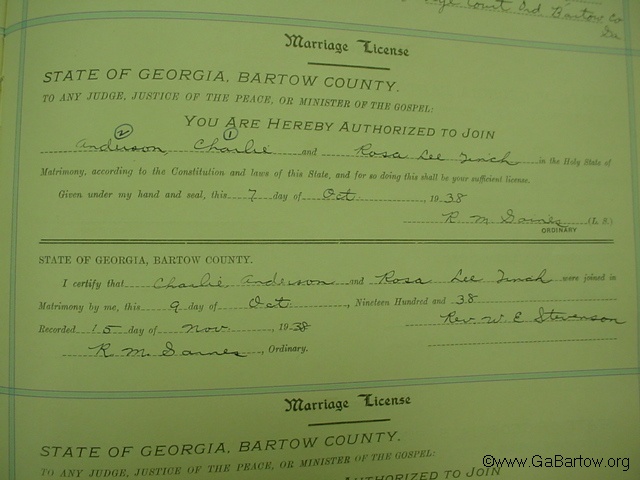 Court Ord Bartow Co
Marriage License
STATE OF GEORGIA, BARTOW COUNTY.
TO ANY JUDGE, JUSTICE OF THE PEACE, OR MINISTER OF THE GOSPEL:
YOU ARE HEREBY AUTHORIZED TO JOIN
2 1
Anderson, Charlie and Rosa Lee Finch in the Holy State of
Matrimony, according to the Constitution and laws of this State, and for so doing this shall be your sufficient license.
Given under my hand and seal, this 7 day of Oct, 1938
R. M. (L. S.)
ORDINARY
STATE OF GEORGIA, BARTOW COUNTY.
I certify that Charlie Anderson and Rosa Lee Finch were joined in
Matrimony by me, this 9 day of Oct, Nineteen Hundred and 38
Rev. W. E Stevenson
Recorded 5 day of Nov. 1938
R. M., Ordinary.
Marriage License
STATE OF GEORGIA, BARTOW COUNTY.
TO ANY JUDGE, JUSTICE OF THE PEACE, OR MINISTER OF THE GOSPEL:
AUTHORIZED TO JOIN
©www.GaBartow.org